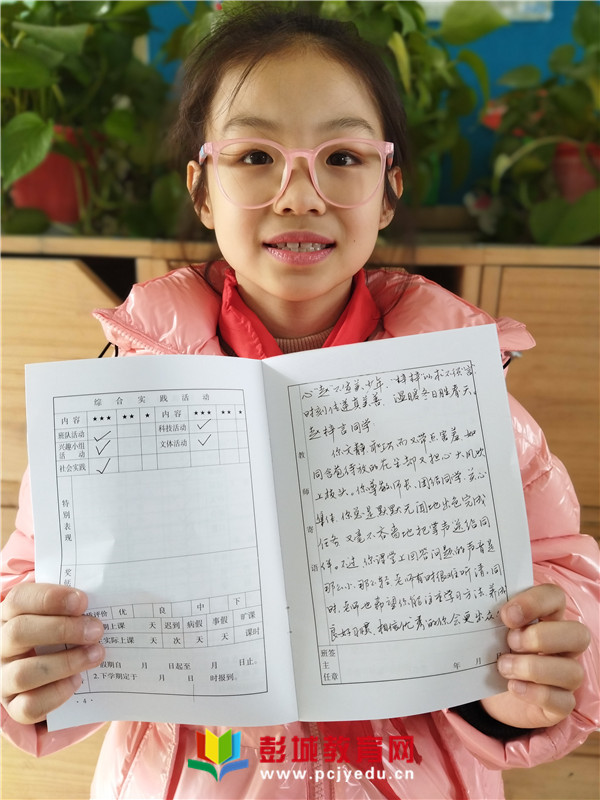 综合实践活动
内容 ★★★ ★★ ★ 内容 ★★★ ★★ ★
班队活动 ✓ 科技活动 ✓
兴趣小组活动 ✓ 文体活动 ✓
社会实践 ✓
特别表现
评价 优 良 中 下
上课 天 迟到 病假 事假 旷课
实际上课 天 次 天 天 课时
假期自 月 日起至 月 日止。
2.下学期定于 月 日 时报到。
·4·
教师寄语
时刻传递真善美，温暖冬日胜春天。
赵梓言同学
你文静、聪洪而又带点害羞，如
同含苞待放的花朵却又担心大风吹
上枝头。你尊敬师长、团结同学、关心
集体，你总是默默无闻地出色完成
任务，又毫不吝啬地把掌声送给同
伴。不过，你课堂上回答问题的声音是
那么小、那么轻，老师有时很难听清，同
时，老师也期望你能注重学习方法，养成
良好习惯，相信优秀的你会更出
班主任签章
年 月 日
彭城教育网
www.pcjyedu.cn